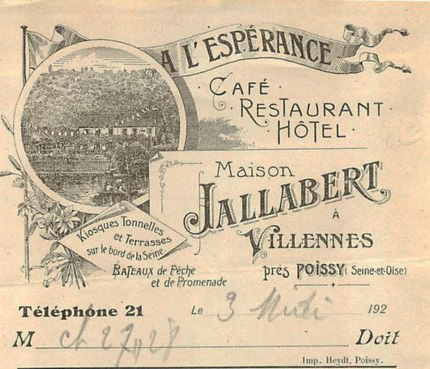 A L'ESPÉRANCE
CAFÉ
RESTAURANT
HÔTEL
Maison
JALLABERT
À
VILLENNES
près POISSY (Seine-et-Oise)
Kiosques Tonnelles
et Terrasses
sur le bord de la Seine
BATEAUX de Pêche
et de Promenade
Téléphone 21
Le 3 192
M Doit
Imp. Heydt, Poissy.